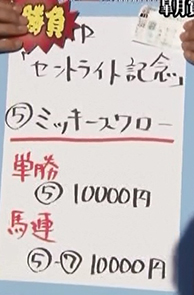 皐月
勝負
「セントライト記念」
⑤ミッキースワロー
単勝
⑤ 10000円
馬連
⑤-⑦ 10000円